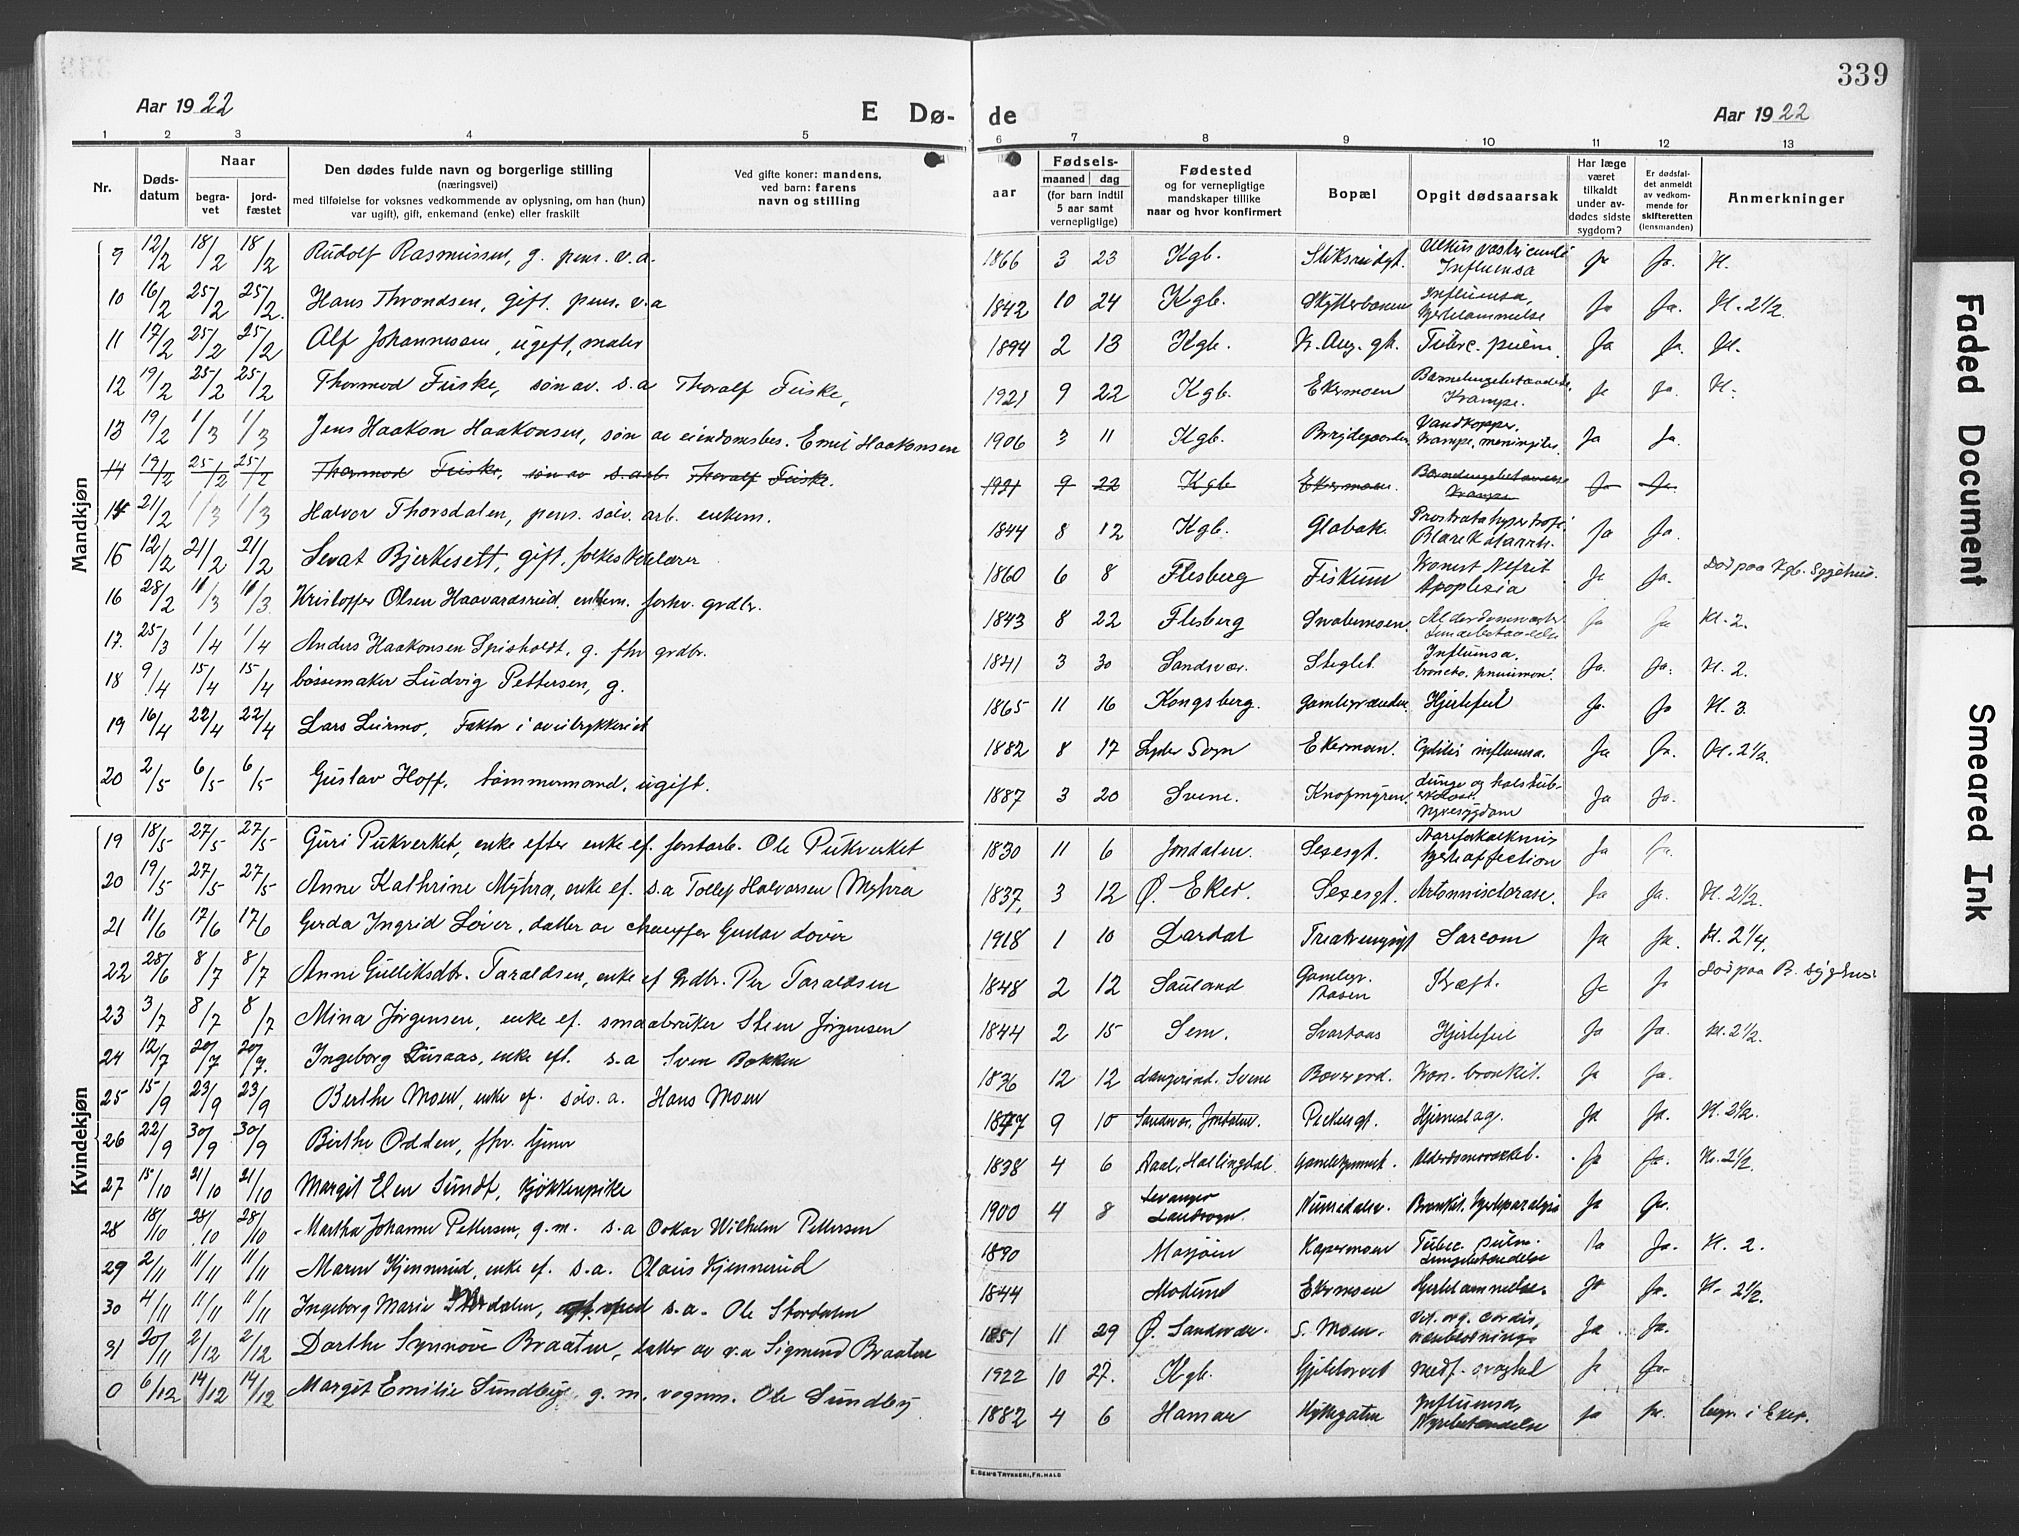 339
Aar 1922
E Dø-
de
Aar 1922
1 2 3 4 5 6 7 8 9 10 11 12 13
Nr.
Døds-
datum
Naar
begra-
vet
jord-
fæstet
Den dødes fulde navn og borgerlige stilling
(næringsvei)
med tilføielse for voksnes vedkommende av oplysning, om han (hun)
var ugift), gift, enkemand (enke) eller fraskilt
Ved gifte koner: mandens,
ved barn: farens
navn og stilling
aar
Fødsels-
maaned dag
(for barn indtil
5 aar samt
vernepligtige)
Fødested
og for vernepligtige
mandskaper tillike
naar og hvor konfirmert
Bopæl
Opgit dødsaarsak
Har læge
været
tilkaldt
under av-
dødes sidste
sygdom?
Er dødsfal-
det anmeldt
av vedkom-
mende for
skifteretten
(lensmanden)
Anmerkninger
Mandkjøn
9 12/2 18/2 18/2 Rudolf Rasmussen, g. pens. v.a. 1866 3 23 Kgb. Influensa Ja Ja. Kl.
10 16/2 25/2 25/2 Hans Throndsen, gift. pens. v.a 1842 10 24 Kgb. Skytterbanen Influensa, hjertelammelse Ja Ja. Kl. 2 1/2.
11 17/2 25/2 25/2 Alf Johannessen, ugift, maler 1894 2 13 Kgb. Kr. Aug. gt. Tuberc. pulm. Ja Ja. Kl.
12 19/2 25/2 25/2 Thormod Fuske, søn av. s.a Thoralf Fuske, 1921 9 22 Kgb. Ekermoen Krampe. Ja Ja. Kl.
13 19/2 1/3 1/3 Jens Haakon Haakonsen, søn av eiendomsbes. Emil Haakonsen 1906 3 11 Kgb. Brydegaarden Vandkopper, krampe, meningites Ja Ja.
14 19/2 25/2 25/2 Thormod Fuske, søn av s.arb. Thoralf Fuske. 1921 9 22 Kgb Ekermoen. Krampe Ja Ja
14 21/2 1/3 1/3 Halvor Thorsdalen, pens. sølv. arb. enkem. 1844 8 12 Kgb. Glabak Blærekatarrh. Ja Ja.
15 12/2 21/2 21/2 Sevat Bjerkesett, gift, folkeskolelærer 1860 6 8 Flesberg Fiskum Kronisk Nefrit Apoplexia Ja Ja. Død paa Kgb. Sygehus.
16 28/2 10/3 10/3 Kristoffer Olsen Haavardsrud, enkem. forhv. grdbr. 1843 8 22 Flesberg Snabemoen. Lungebetændelse Ja Ja Kl. 2.
17. 25/3 1/4 1/4 Anders Haakonsen Spisholdt, g. fhv grdbr. 1841 3 30 Sandsvær. Steglet Influensa, broncho. pneumoni. Ja. Ja. Kl. 2.
18 9/4 15/4 15/4 bøssemaker Ludvig Pettersen, g. 1865 11 16 Kongsberg. Hjertefeil Ja. Ja Kl. 3.
19 16/4 22/4 22/4 Lars Leirmo, Faktor i avistrykkeriet 1882 8 17 Lyder Sogn Ekermoen. influensa. Ja Ja. Kl. 2 1/2.
20 2/5 6/5 6/5 Gustav Hoff, tømmermand, ugift. 1887 3 20 Svene. Knofmyren. Lunge og halstuberkulose. Nyresygdom Ja Ja.
Kvindekjøn
19 18/5 27/5 27/5 Guri Pukverket, enke efter enke ef. forstarb. Ole Pukverket 1830 11 6 Jondalen. Sexesgt. Aareforkalkning Hjerteaffection Ja Ja.
20 19/5 27/5 27/5 Anne Kathrine Myhra, enke ef. s.a Tollef Halvorsen Myhra 1837, 3 12 Ø. Eker. Sexesgt. Ja Ja. Kl. 2 1/2.
21 11/6 17/6 17/6 Gerda Ingrid Løver, datter av chauffør Gustav Løver 1918 1 10 Lardal Sarcom Ja Ja. Kl. 2 1/4.
22 28/6 8/7 8/7 Anne Gulliksdtr. Taraldsen, enke ef Grdbr. Per Taraldsen 1848 2 12 Sauland Gamlegr. Aasen Kræft. Ja J Død paa B. Sygehus.
23 3/7 8/7 8/7 Mina Jørgensen, enke ef. smaabruker Steen Jørgensen 1844 2 15 Sem. Svartaas Hjertefeil Ja Ja. Kl. 2 1/2.
24 12/7 20/7 20/7. Ingeborg Lusaas, enke eft. s.a Sven Bakken 1836 12 12 Svene Kron. bronkit. Ja Ja.
25 15/9 23/9 23/9 Berthe Moen, enke ef. sølv. a. Hans Moen 1847 9 10 Sandsvær, Jondalen. Pickersgt. Hjerneslag. Ja Ja. Kl. 2 1/2.
26 22/9 30/9 30/9 Birthe Odden, fhv. tjener 1838 4 6 Aal, Hallingdal. Alderdomssvækkel. Ja Ja. Kl. 2 1/2.
27 15/10 21/10 21/10 Margit Elen Sundt, kjøkkenpike 1900 4 8 Levanger Landsogn. Numedalsv. Bronkit. Hjerteparalysi Ja Ja.
28 18/10 28/10 28/10 Martha Johanne Pettersen, g.m. s.a Oskar Wilhelm Pettersen 1890 Mosjøen Kapermoen Tuberc. pulm. Lungebetændelse Ja Ja. Kl. 2.
29 2/11 11/11 11/11 Maren Kjennerud, enke ef. s.a. Olaus Kjennerud 1844 Modum Ekermoen Hjertelammelse. Ja Ja. Kl. 2 1/2.
30 4/11 11/11 11/11 Ingeborg Marie Stordalen, s.a. Ole Stordalen 1851 11 29 Ø. Sandsvær. S. Moen. Vit. org. cordis, Ja Ja.
31 20/11 2/12 2/12 Dorthe Synnøve Braaten, datter av v.a Sigmund Braaten 1922 10 27. Kgb. Gjeltorvet medf. svaghed Ja Ja.
0 6/12 14/12 14/12 Margit Emilie Sundbye, g.m. vognm. Ole Sundby 1882 4 6 Hamar Hyttegaten Influensa, Nyrebetændelse Ja Ja. begr. i Eker.
E. SEM'S TRYKKERI, FR.HALD
Faded Document
Smeared Ink